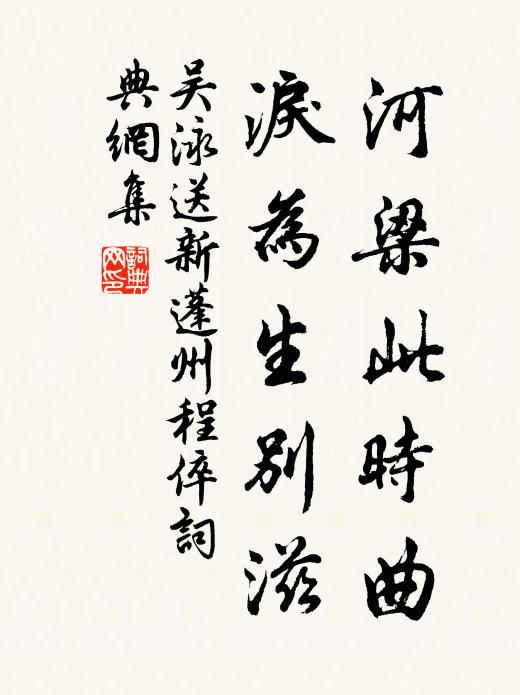 河梁此時曲
淚為生別滋
吳泳送新蓬州程倅詞
典網集
詞典
網印